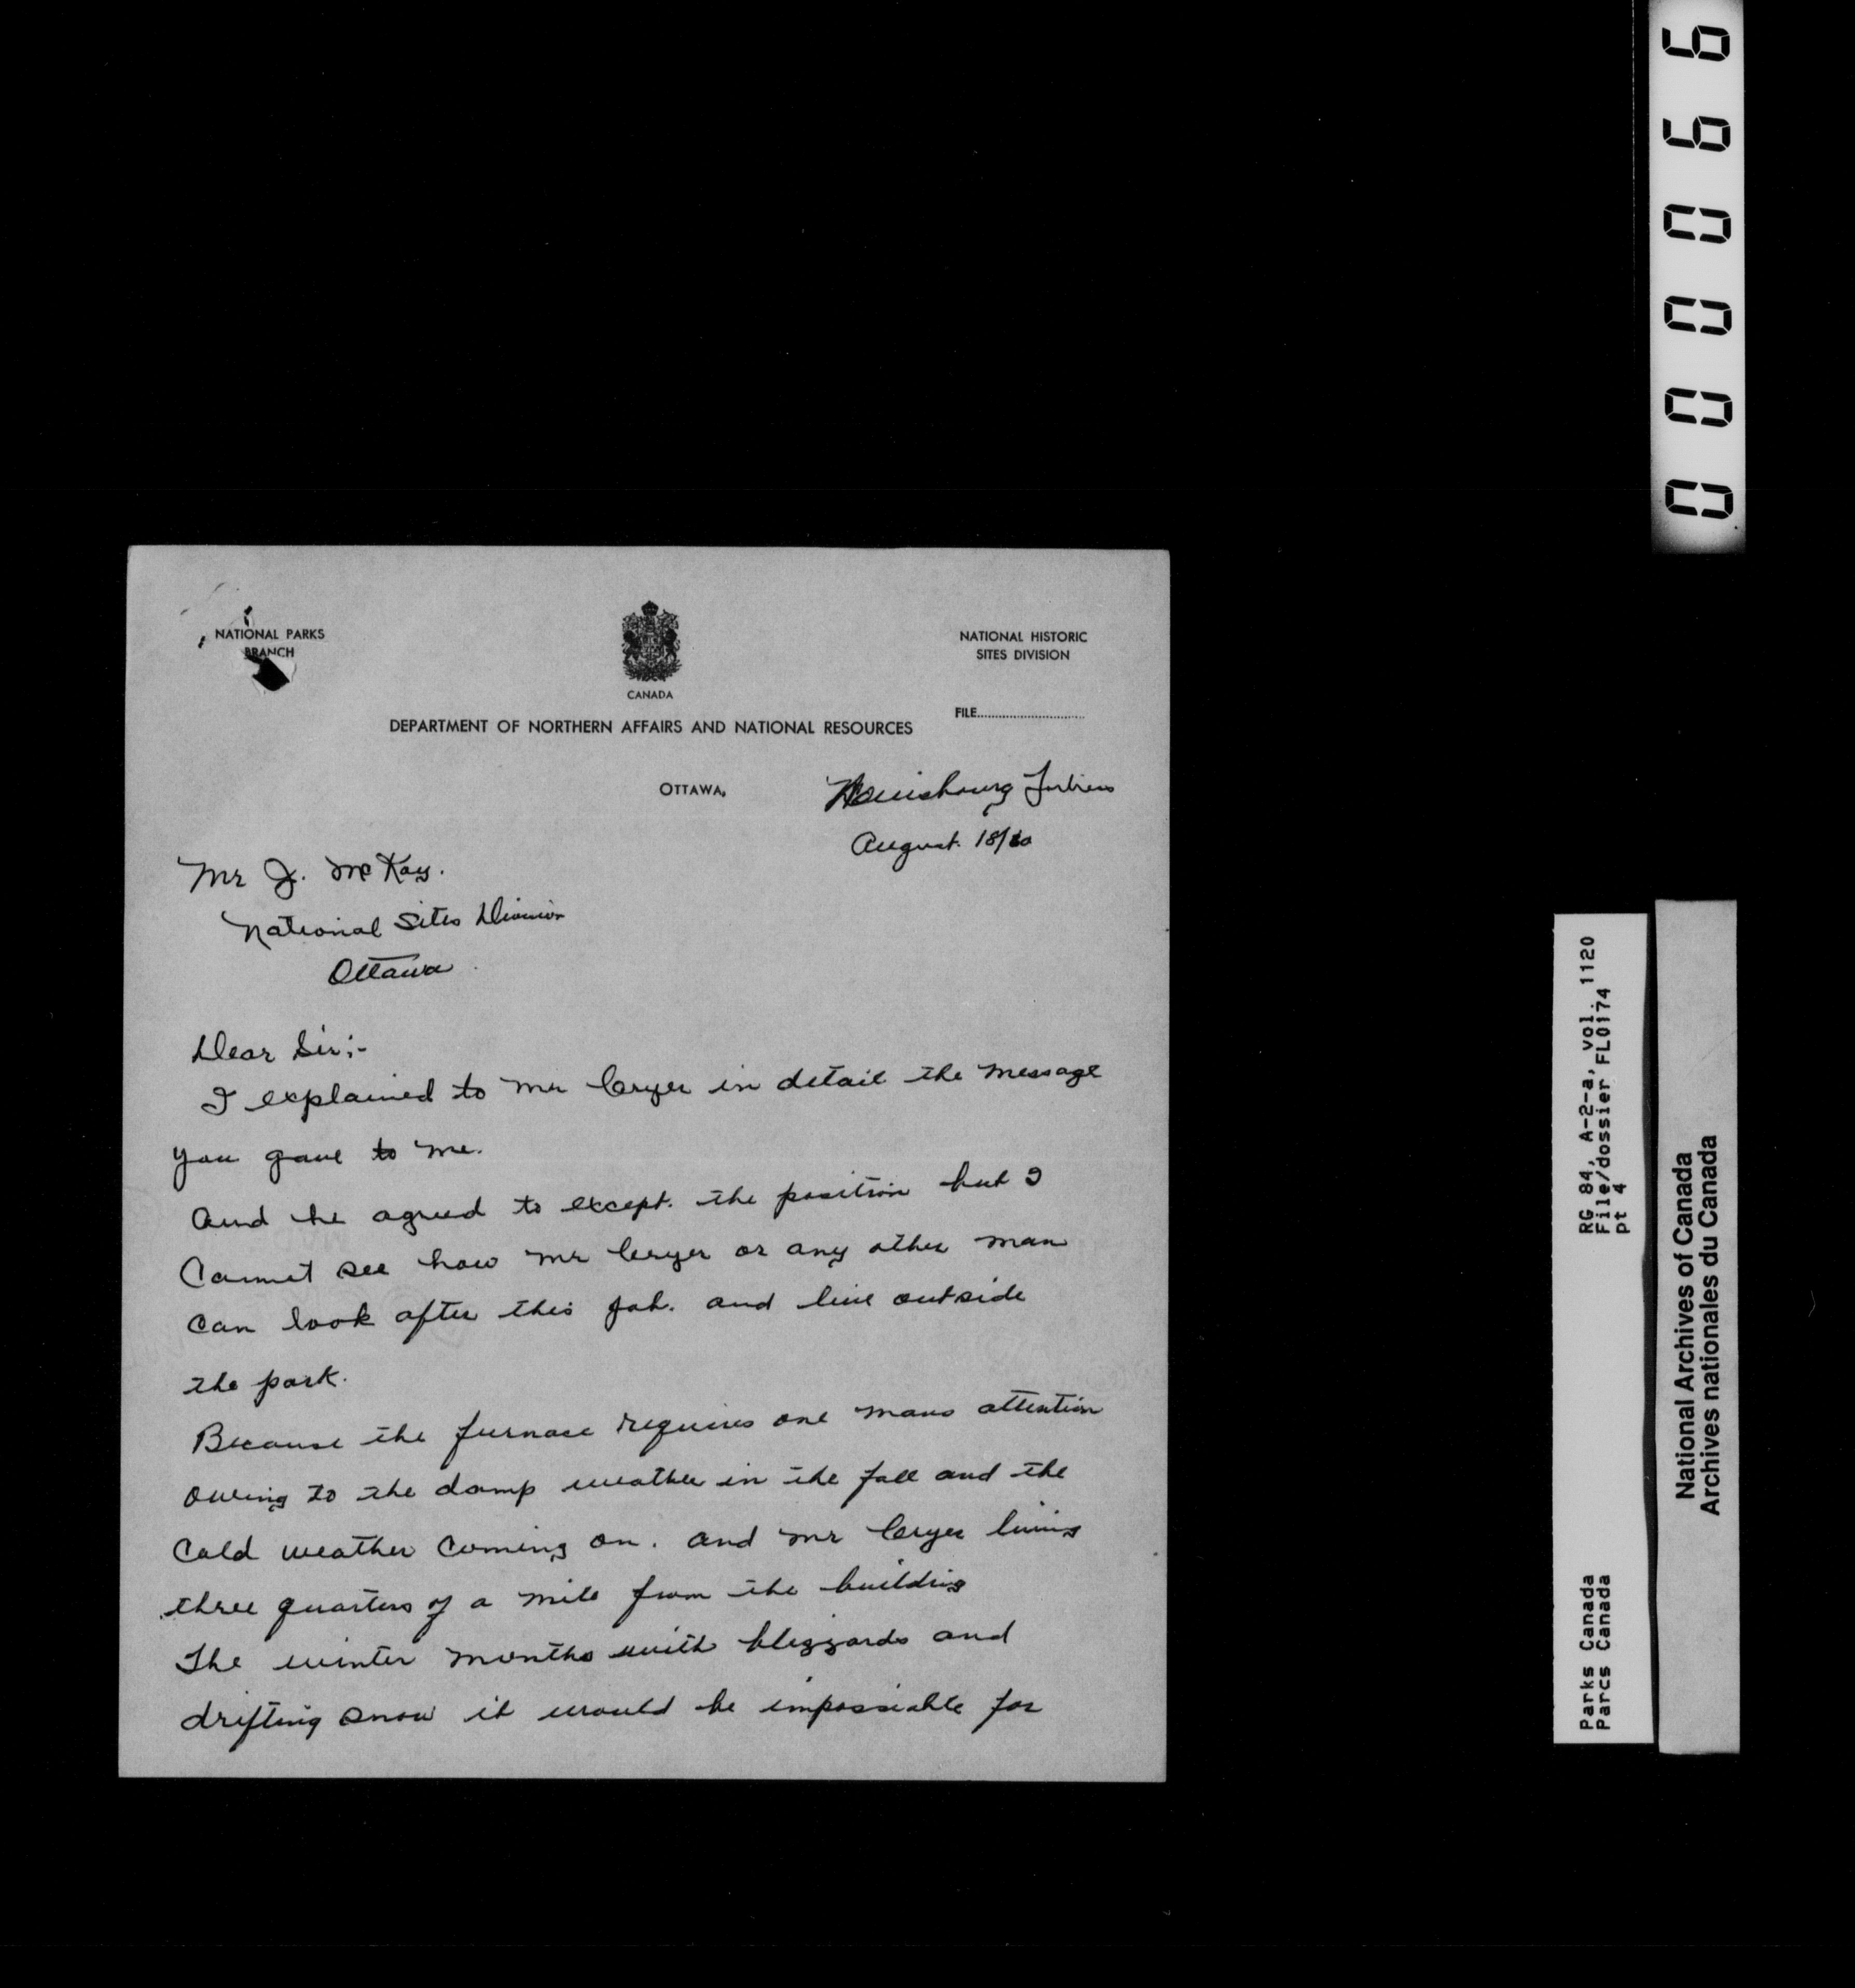 NATIONAL PARKS
BRANCH
CANADA
NATIONAL HISTORIC
SITES DIVISION
FILE
DEPARTMENT OF NORTHERN AFFAIRS AND NATIONAL RESOURCES
OTTAWA,
Louisbourg Fortress
August. 18/60
Mr J. McKay.
National Sites Division
Ottawa
Dear Sir;-
I explained to Mr Cryer in detail the message
you gave to me.
And he agreed to except. the position but I
Cannot see how Mr Cryer or any other man
can look after this job. and live outside
the park.
Because the furnace requires one mans attention
owing to the damp weather in the fall and the
cold weather coming on. and Mr Cryer living
three quarters of a mile from the building
The winter months with blizzards and
drifting snow it would be impossiable for
000066
RG 84, A-2-a, vol. 1120
File/dossier FL0174
pt 4
Parks Canada
Parcs Canada
National Archives of Canada
Archives nationales du Canada